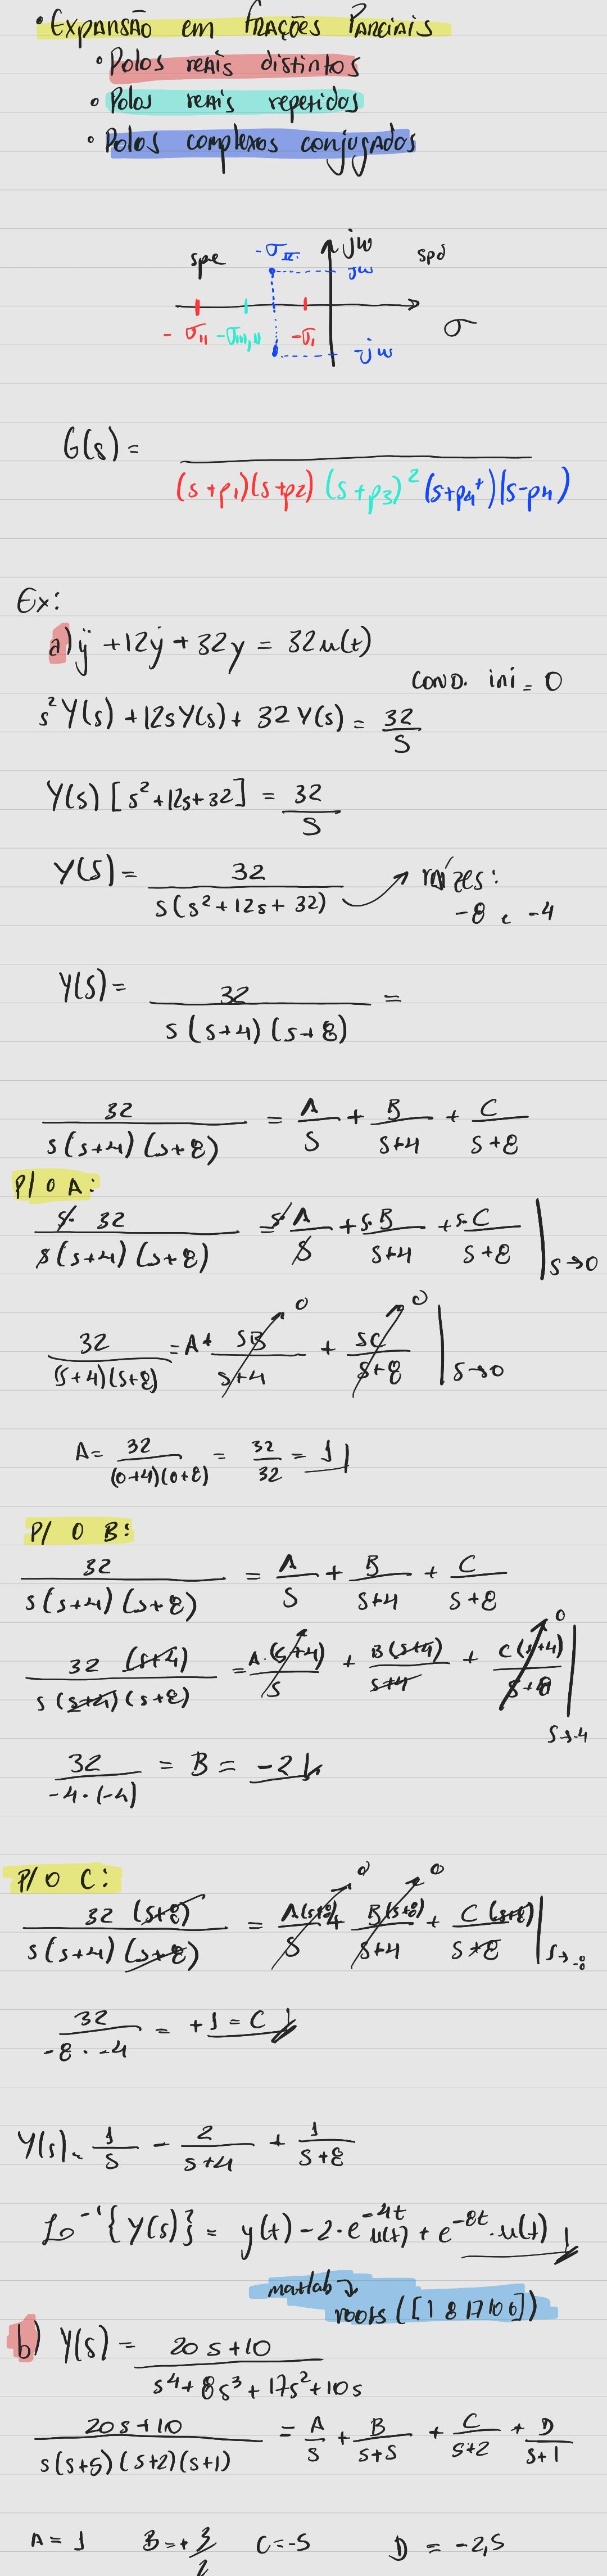 • Expansão em Frações Parciais
• Polos reais distintos
• Polos reais repetidos
• Polos complexos conjugados
spe -σ_IV jω spd
jω
-σ_II -σ_III,II -σ_I σ
-jω
G(s) = ———
(s+p1)(s+p2)(s+p3)²(s+p4⁺)(s-p4)
Ex:
a) ÿ + 12ẏ + 32y = 32u(t)
COND. ini = 0
s²Y(s) + 12sY(s) + 32Y(s) = 32/S
Y(s)[s²+12s+32] = 32/S
Y(S) = 32/(s(s²+12s+32)) → raízes:
-8 e -4
Y(S) = 32/(s(s+4)(s+8)) =
32/(s(s+4)(s+8)) = A/S + B/(s+4) + C/(s+8)
P/ O A:
s·32/(s(s+4)(s+8)) = s·A/s + s·B/(s+4) + s·C/(s+8) | s→0
32/((s+4)(s+8)) = A + sB/(s+4) → 0 + sC/(s+8) → 0 | s→0
A = 32/((0+4)(0+8)) = 32/32 = 1
P/ O B:
32/(s(s+4)(s+8)) = A/S + B/(s+4) + C/(s+8)
32(s+4)/(s(s+4)(s+8)) = A·(s+4)/s + B(s+4)/(s+4) + C(s+4)/(s+8) → 0 | s→-4
32/(-4·(-4)) = B = -2
P/ O C:
32(s+8)/(s(s+4)(s+8)) = A(s+8)/s → 0 + B(s+8)/(s+4) → 0 + C(s+8)/(s+8) | s→-8
32/(-8·-4) = +1 = C
Y(s) = 1/S - 2/(s+4) + 1/(s+8)
L⁻¹{Y(s)} = y(t) - 2·e^(-4t) u(t) + e^(-8t)·u(t)
matlab →
roots([1 8 17 10 0])
b) Y(s) = (20s+10)/(s⁴+8s³+17s²+10s)
(20s+10)/(s(s+5)(s+2)(s+1)) = A/S + B/(s+5) + C/(s+2) + D/(s+1)
A = 1 B = +3/2 C = -5 D = -2,5